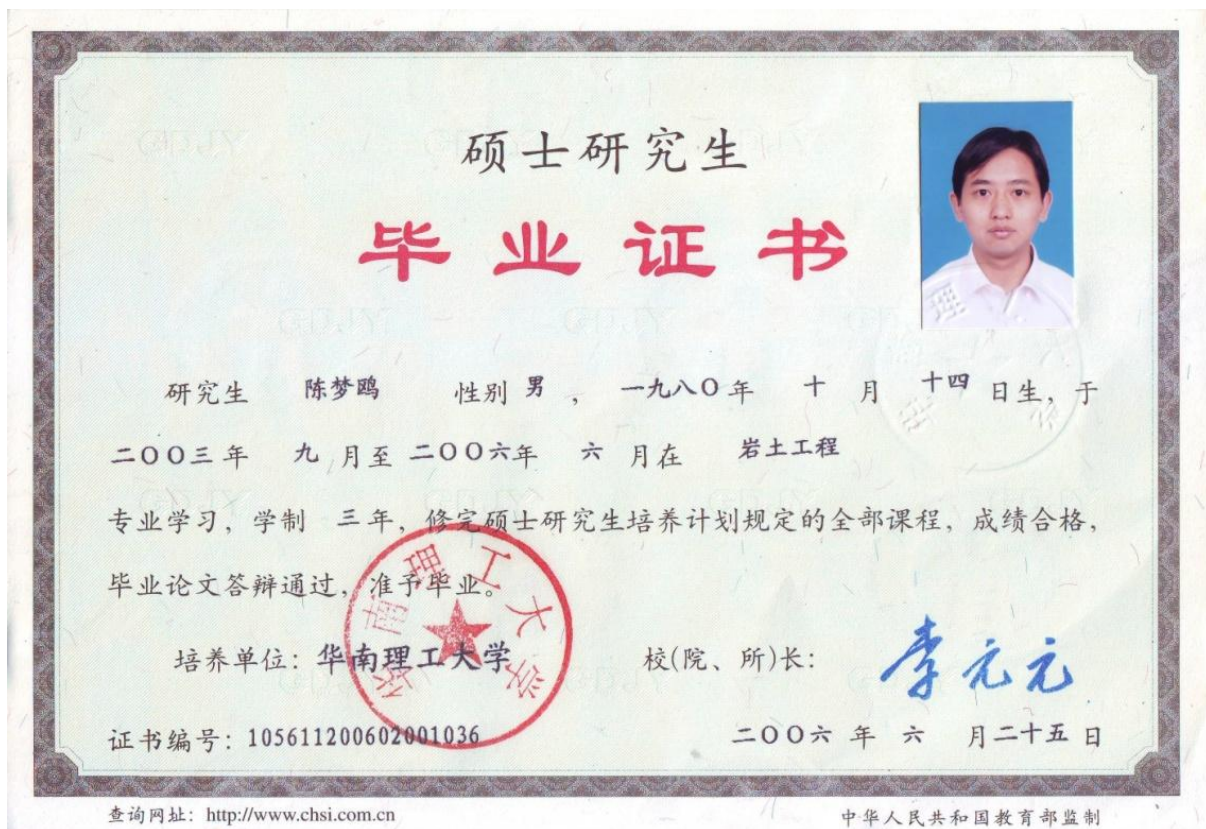 硕士研究生
毕业证书
研究生 陈梦鸥 性别 男 ， 一九八〇年 十 月 十四 日生，于
二〇〇三年 九 月至 二〇〇六年 六 月在 岩土工程
专业学习，学制 三年，修完硕士研究生培养计划规定的全部课程，成绩合格，
毕业论文答辩通过，准予毕业。
华南理工大学
培养单位：华南理工大学 校(院、所)长： 李元元
证书编号：105611200602001036 二〇〇六 年 六 月二十五 日
查询网址：http://www.chsi.com.cn 中华人民共和国教育部监制